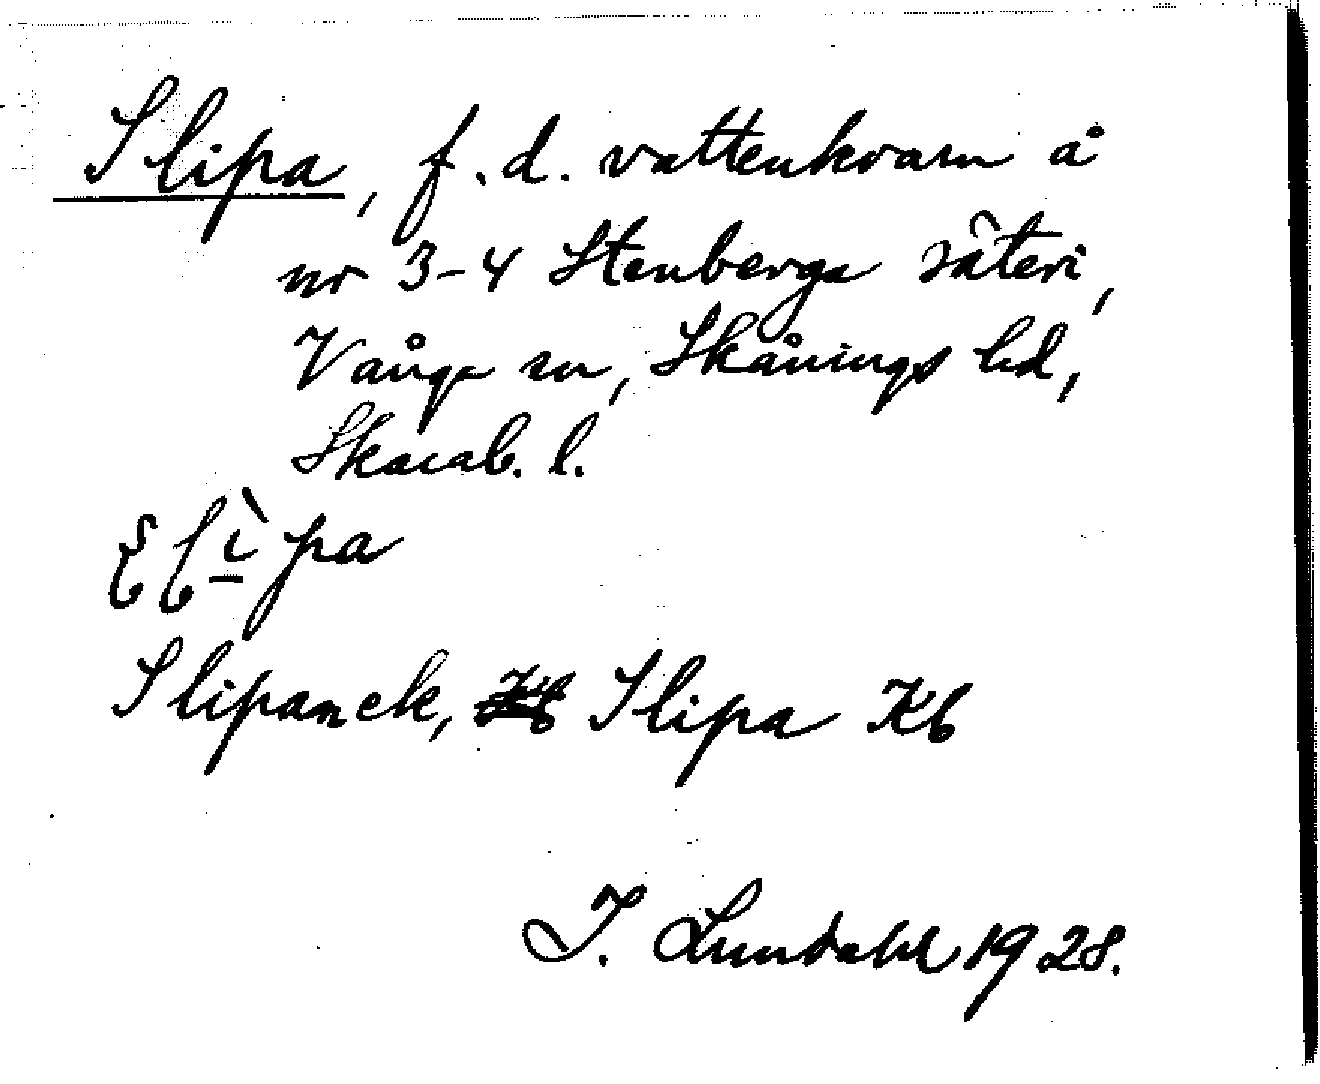 Slipa, f.d. vattenkvarn å
nr 3-4 Stenbergs säteri,
Vånga sn, Skånings hd,
Skarab. l.
Slipanek, Slipa Kb
I. Lundahl 1928.